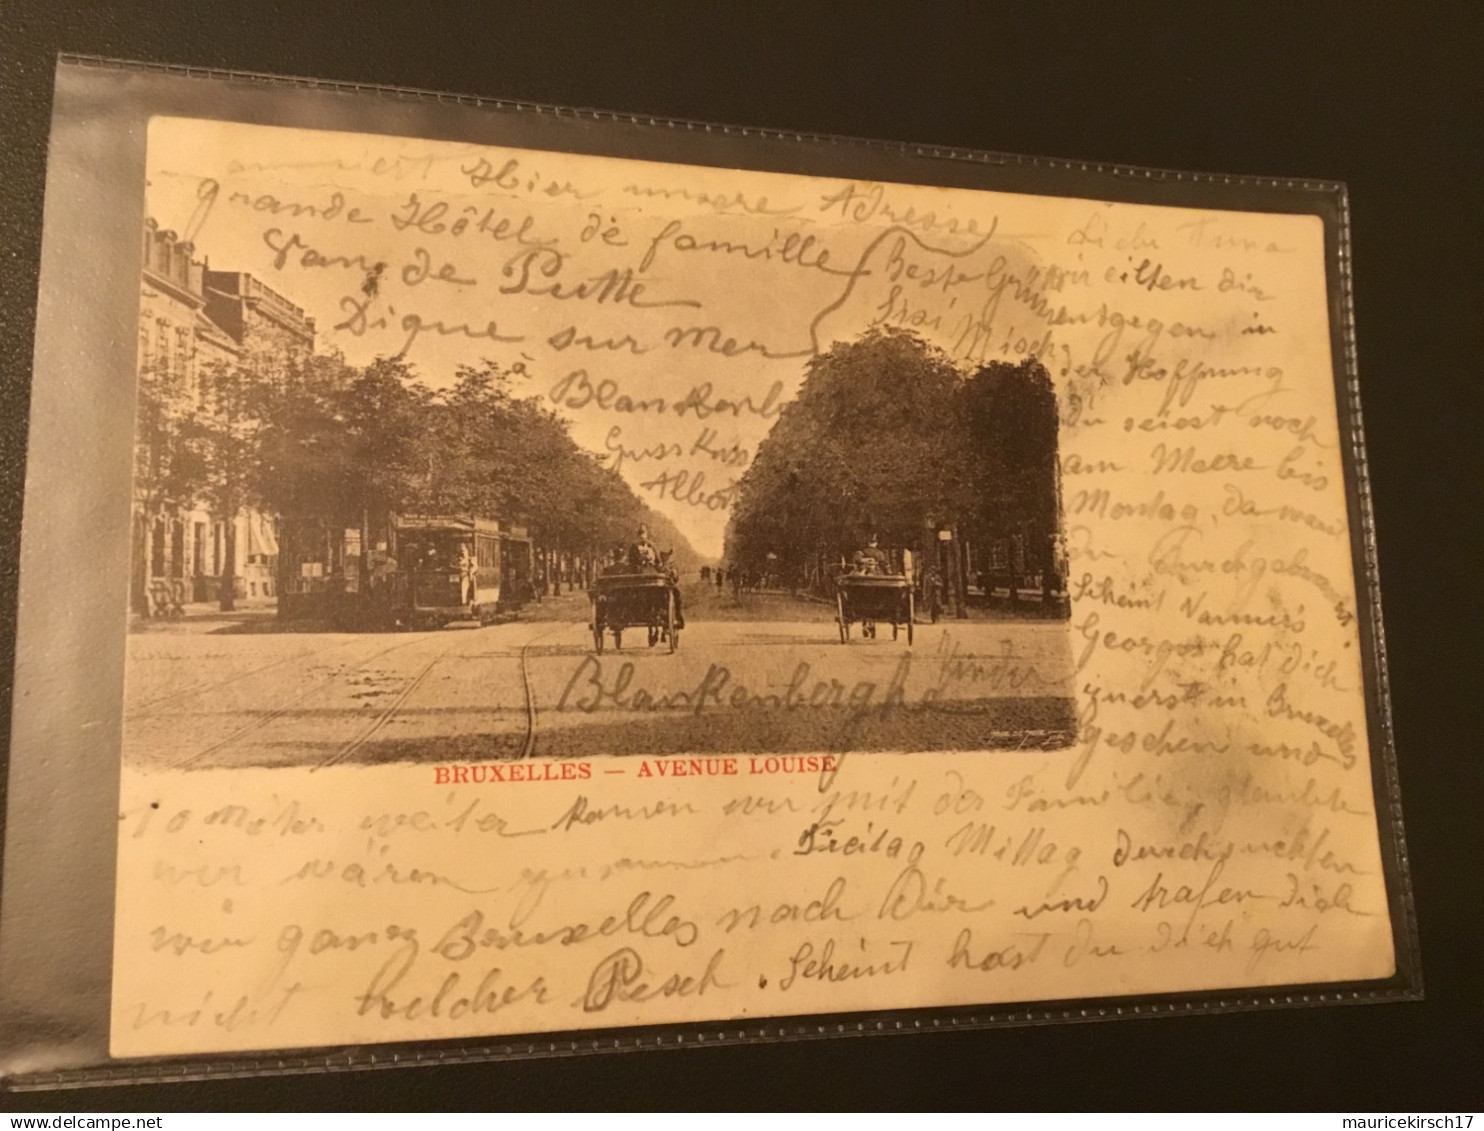 Hier unsere Adresse
grande Hôtel de famille
Van de Putte
Digue sur mer
à
Blankenb
Albert
Blankenberghe
Kinder
Beste Grüsse
Frai Misch
Liebe Anna
wir eilten dir
entgegen, in
der Hoffnung
du seiest noch
am Meere bis
Montag, da warst
du durchgebrannt
Scheint
Georges hat dich
zuerst in Bruxelles
gesehen und
BRUXELLES — AVENUE LOUISE
10 Meter weiter kamen wir mit der Familie, glaubte
wir wären zusammen. Freitag Mittag durchsuchten
wir ganz Bruxelles nach Dir und trafen dich
nicht welcher Pesch. Scheint hast du dich gut
amusiert
mauricekirsch17